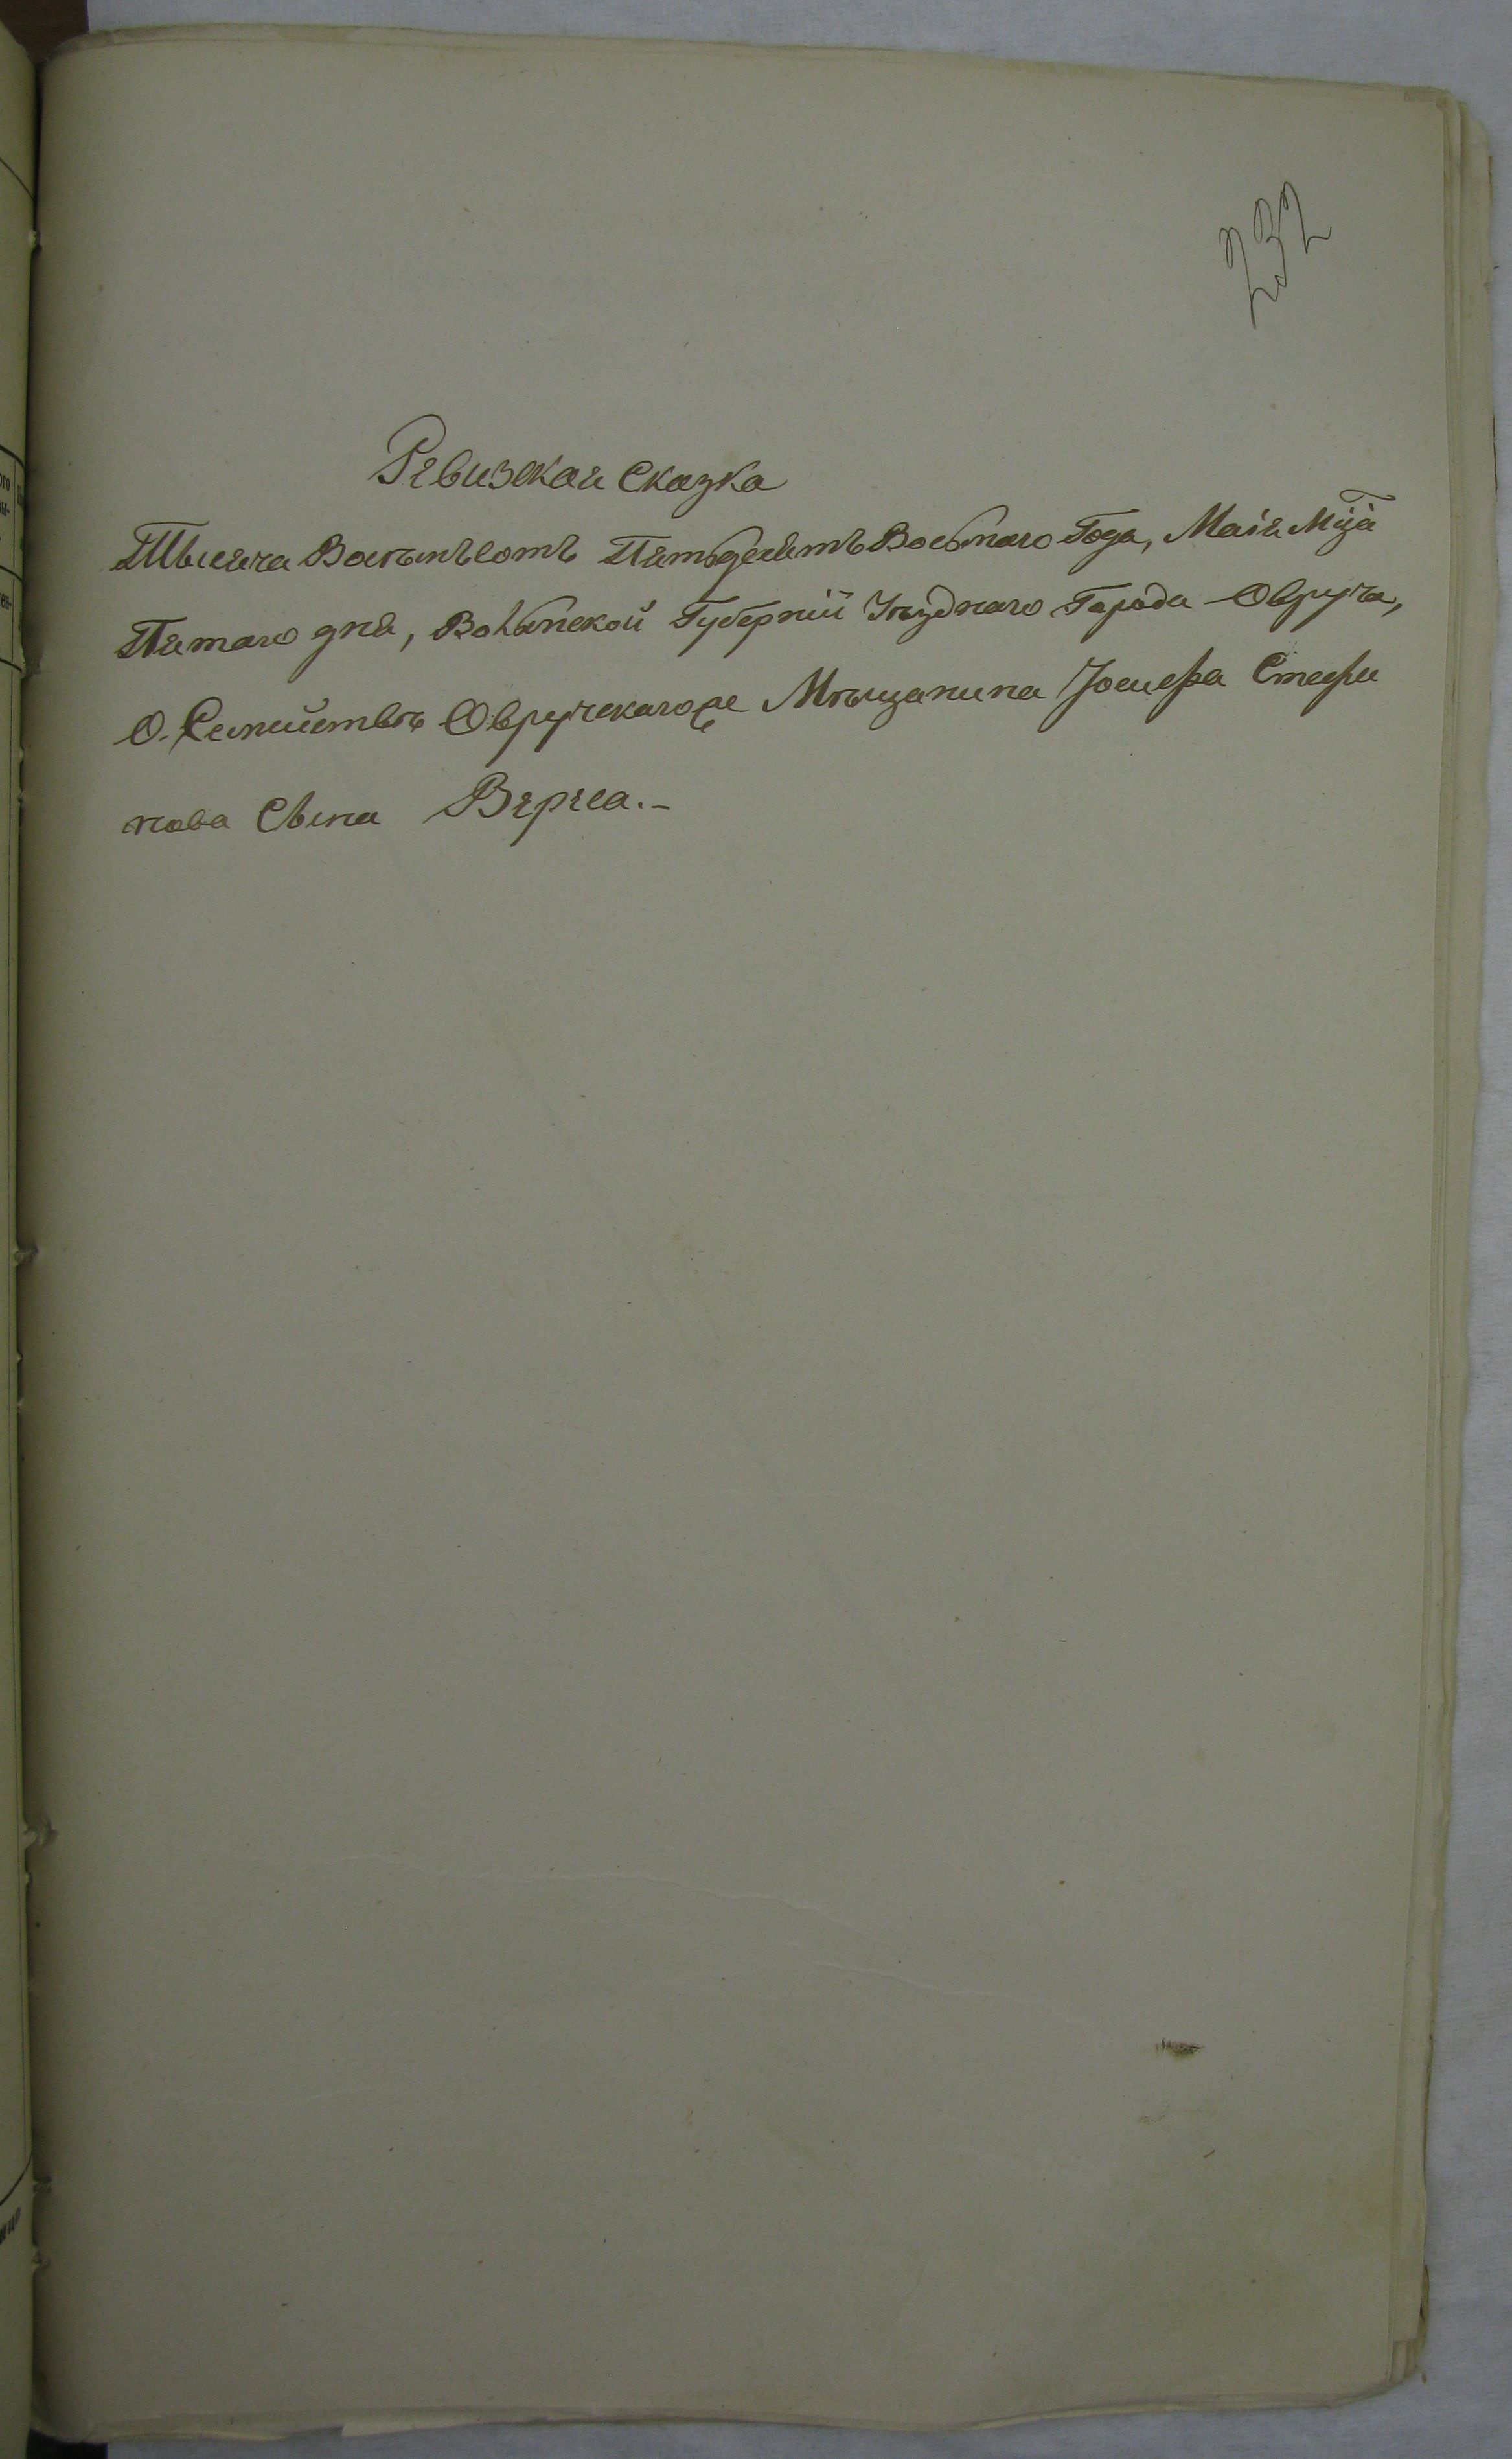 232
Ревизская Сказка
Тысяча Восѣмъсотъ Пятьдесятъ Восьмаго Года, Маія Мца
Пятаго дня, Волынской Губерніи Уѣзднаго Города Овруча,
О Семействѣ Овручскаго Мѣщанина Іосифа Стефа
нова Сына Верега.-